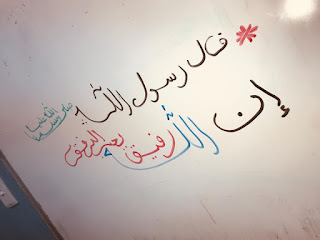 * قال رسول الله صلى الله عليه وسلم
إن الله رفيق يحب الرفق